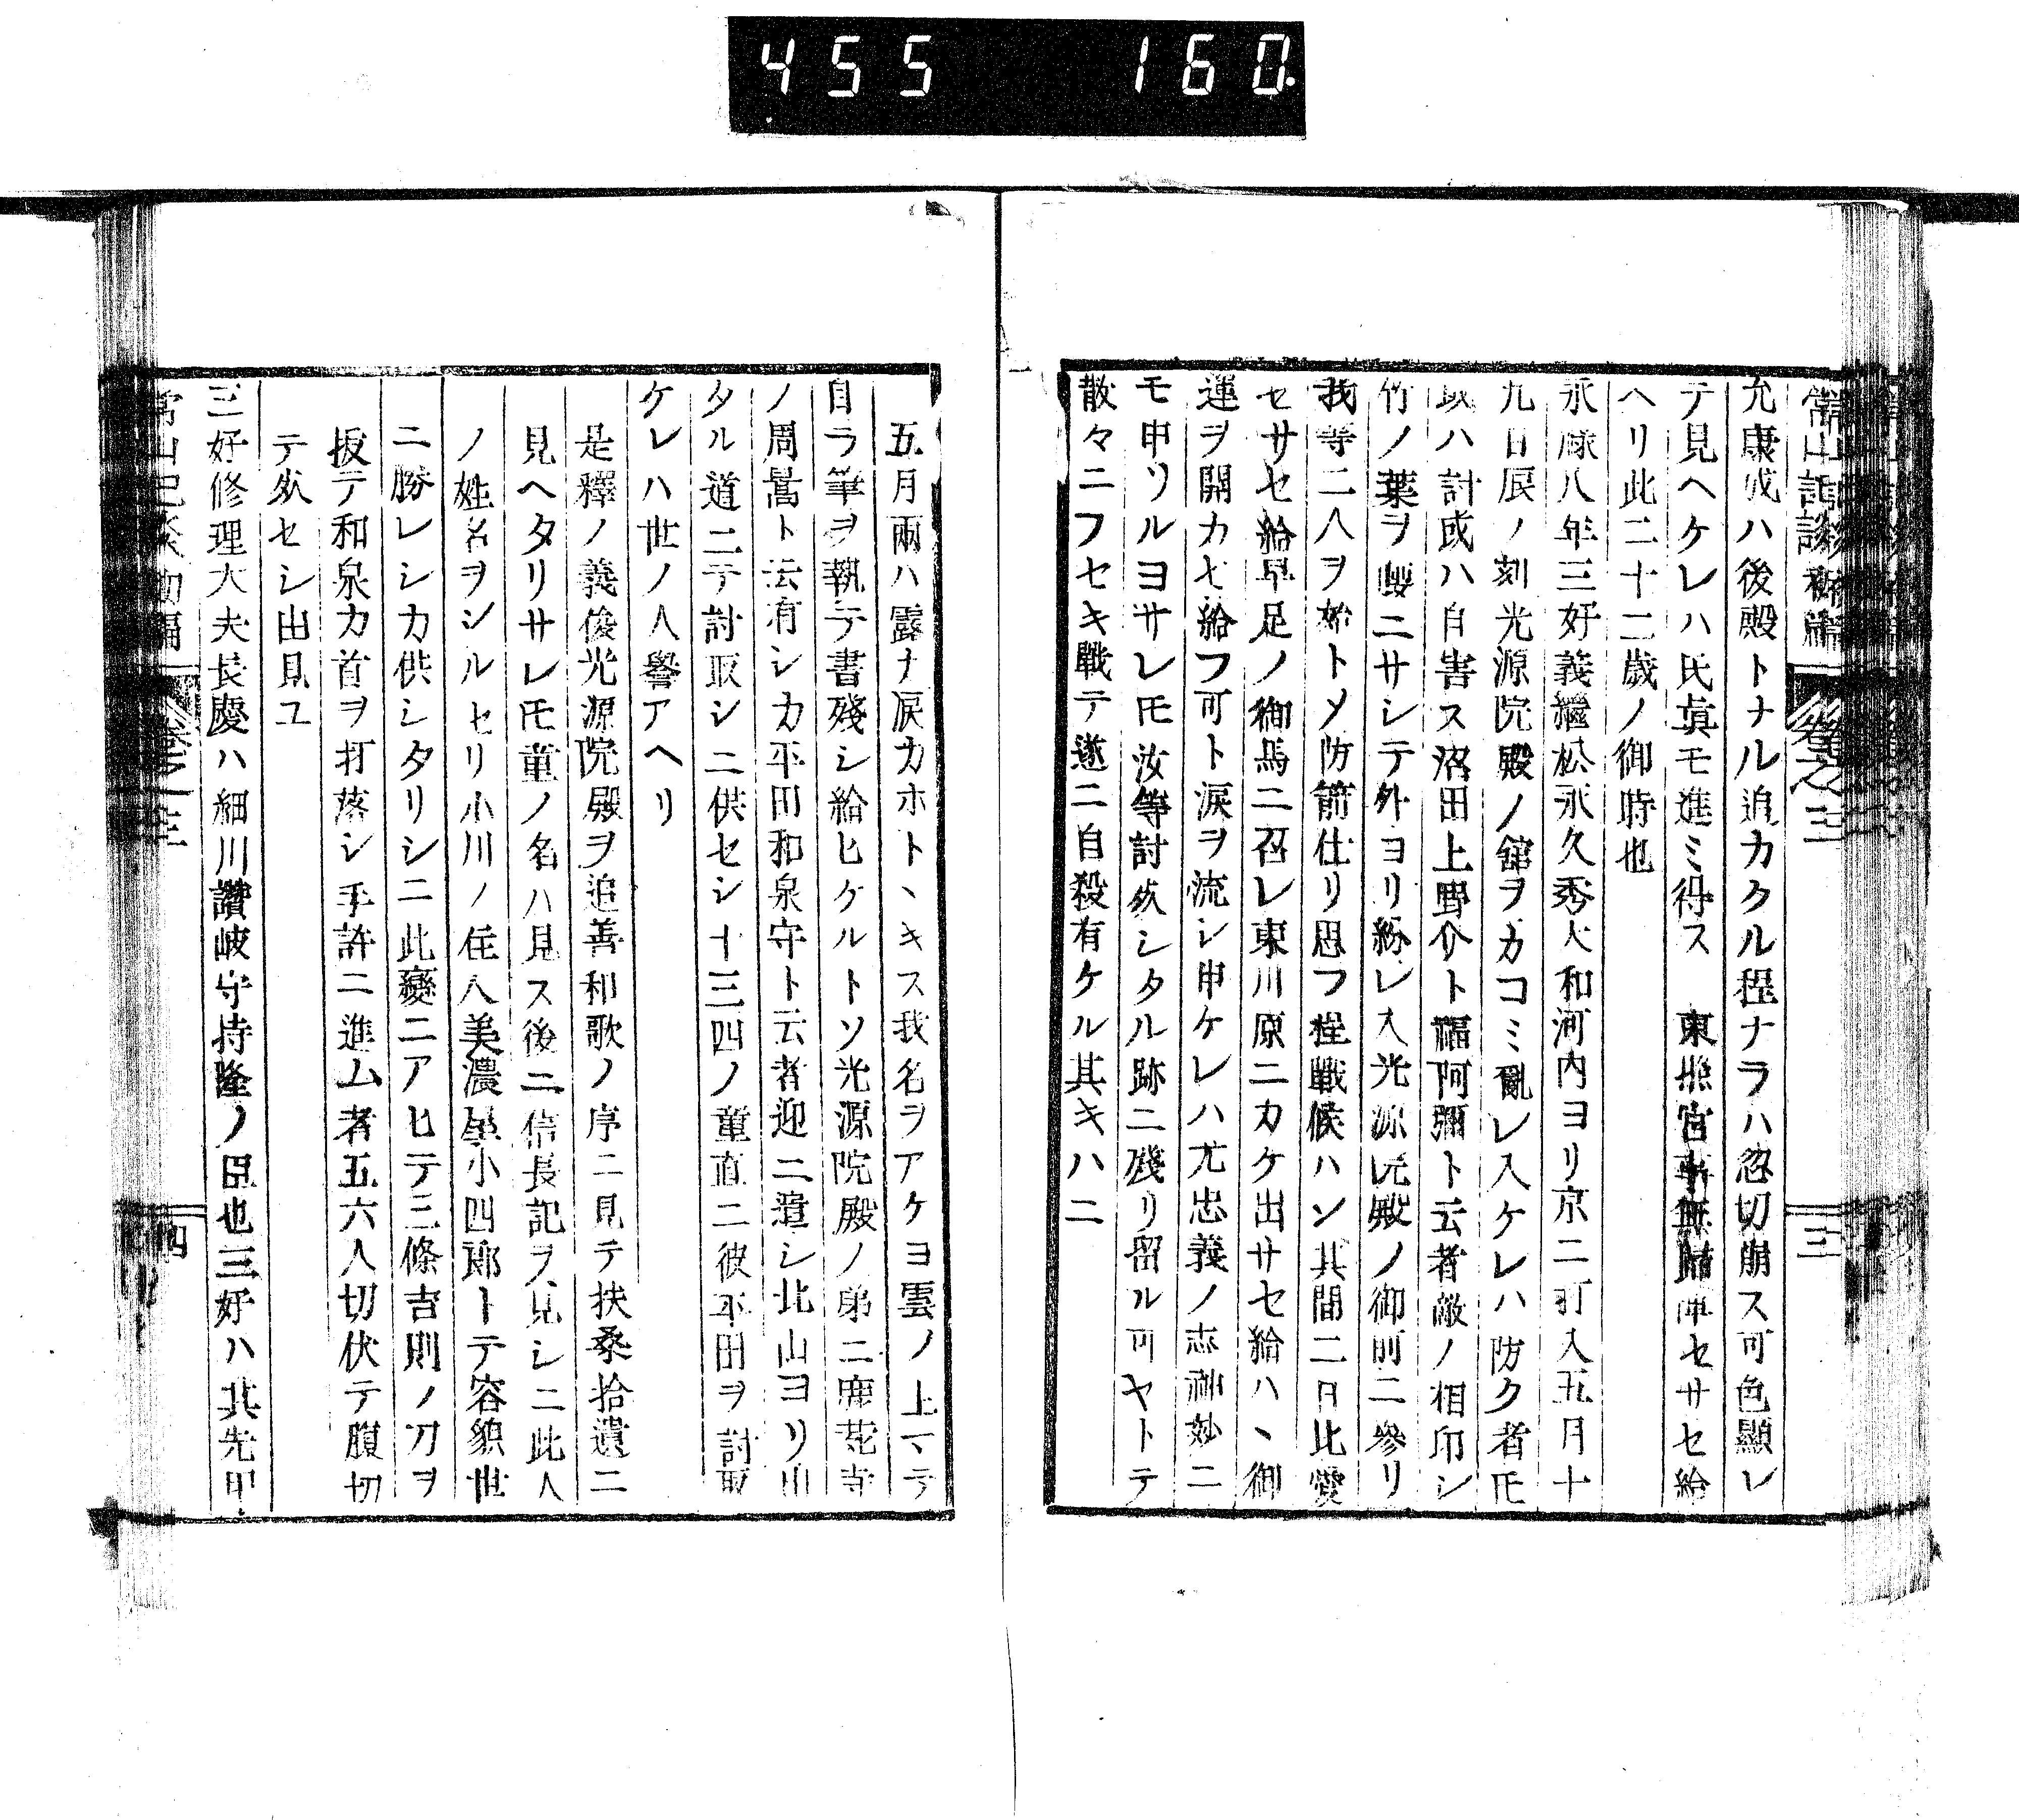 455 160.
常山記談初編 卷之三 三
允康成ハ後殿トナル追カカル程ナラハ忽切崩ス可色顯レ
テ見ヘケレハ氏眞モ進ミ得ス 東照宮事無歸陣セサセ給
ヘリ此二十二歳ノ御時也
永祿八年三好義繼松永久秀大和河内ヨリ京ニ打入五月十
九日辰ノ刻光源院殿ノ舘ヲカコミ亂レ入ケレハ防ク者𪜈
或ハ計或ハ自害ス沼田上野介ト福阿彌ト云者敵ノ相印シ
竹ノ葉ヲ腰ニサシテ外ヨリ紛レ入光源院殿ノ御前ニ參リ
我等二人ヲ始トメ防箭仕リ思フ程戰候ハン其間ニ日比愛
セサセ給早足ノ御馬ニ召レ東川原ニカケ出サセ給ハヽ御
運ヲ開カセ給フ可ト涙ヲ流シ申ケレハ尤忠義ノ志神妙ニ
モ申ツルヨサレ𪜈汝等討死シタル跡ニ殘リ留ル可ヤトテ
散々ニフセキ戰テ遂ニ自殺有ケル其キハニ
五月雨ハ露ナ涙カホトヽキス我名ヲアケヨ雲ノ上マテ
自ラ筆ヲ執テ書殘シ給ヒケルトソ光源院殿ノ弟ニ鹿苑寺
ノ周暠ト云有シカ平田和泉守ト云者迎ニ遣シ北山ヨリ出
タル道ニテ討取シニ供セシ十三四ノ童直ニ彼平田ヲ討取
ケレハ世ノ人譽アヘリ
是釋ノ義俊光源院殿ヲ追善和歌ノ序ニ見テ扶桑拾遺ニ
見ヘタリサレ𪜈童ノ名ハ見ス後ニ信長記ヲ見シニ此人
ノ姓名ヲシルセリ小川ノ住人美濃屋小四郎トテ容貌世
ニ勝レシカ供シタリシニ此變ニアヒテ三條吉則ノ刀ヲ
拔テ和泉カ首ヲ打落シ手許ニ進ム者五六人切伏テ腹切
テ死セシ由見ユ
三好修理大夫長慶ハ細川讚岐守持隆ノ臣也三好ハ其先甲
常山記談初編 卷之三 四